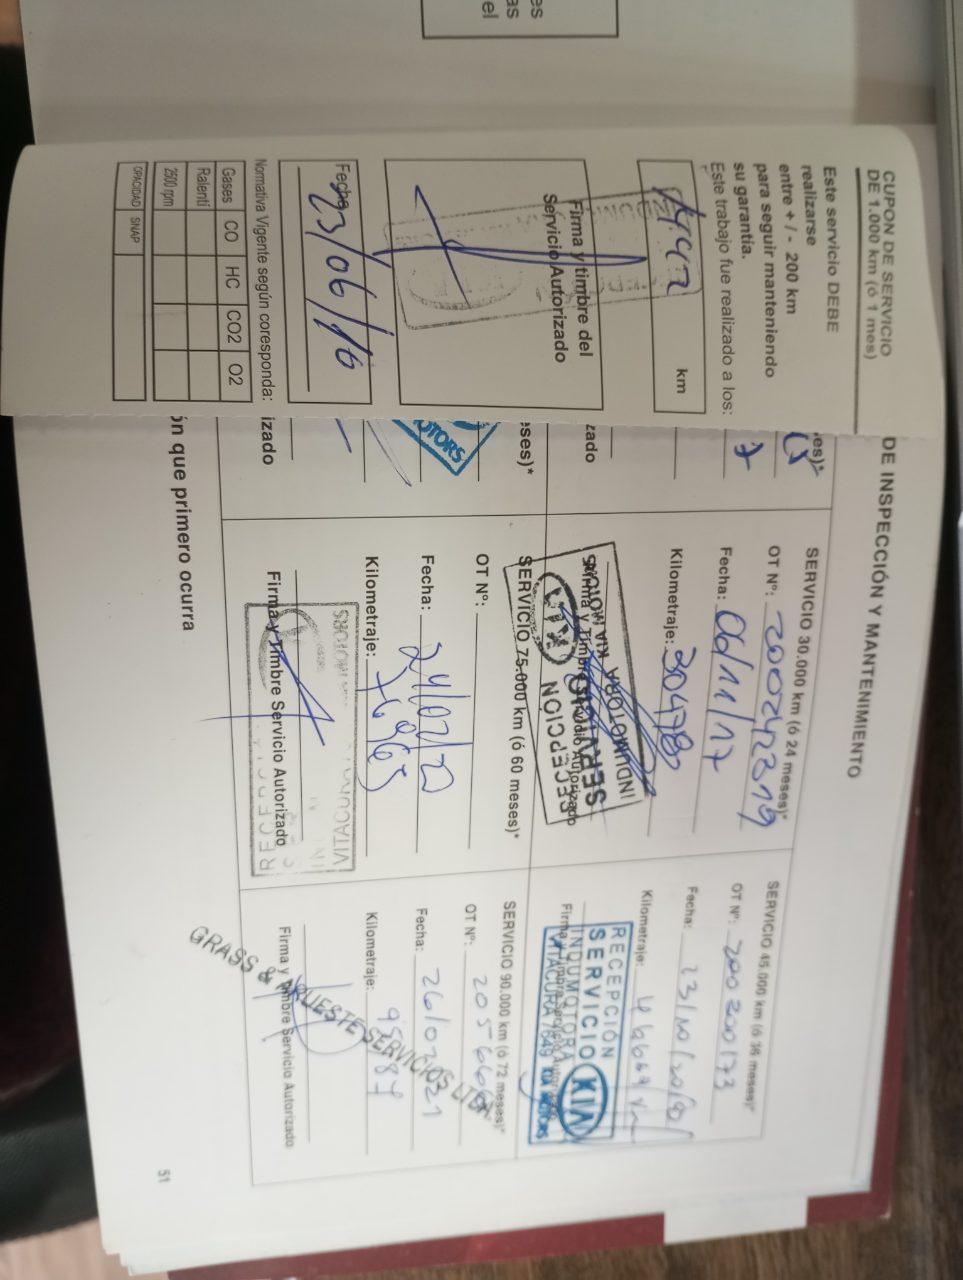 es
as
el
CUPON DE SERVICIO
DE 1.000 km (ó 1 mes)
Este servicio DEBE
realizarse
entre + / - 200 km
para seguir manteniendo
su garantía.
Este trabajo fue realizado a los:
km
Firma y timbre del
Servicio Autorizado
Fecha
23/06/16
Normativa Vigente según coresponda:
Gases CO HC CO2 O2
Ralentí
2500 rpm
OPACIDAD SNAP
DE INSPECCIÓN Y MANTENIMIENTO
es)*
zado
eses)*
OTORS
izado
ón que primero ocurra
SERVICIO 30.000 km (ó 24 meses)*
OT Nº: 200242319
Fecha: 06/11/17
Kilometraje: 30478
Firma y Timbre Servicio Autorizado
INDUMOTORA KIA MOTORS
SERVICIO
KIA RECEPCION
SERVICIO 75.000 km (ó 60 meses)*
OT Nº:
Fecha: 24/02/20
Kilometraje: 76965
Firma y Timbre Servicio Autorizado
VITACURA
SERVICIO 45.000 km (ó 36 meses)*
OT Nº: 200200173
Fecha: 23/10/2018
Kilometraje: 46664 km
Firma y Timbre Servicio Autorizado
RECEPCIÓN
SERVICIO KIA
INDUMOTORA
VITACURA KIA MOTORS
SERVICIO 90.000 km (ó 72 meses)*
OT Nº:
Fecha: 26/02/21
Kilometraje:
Firma y Timbre Servicio Autorizado
GRASS & ARUESTE SERVICIOS LTDA
51